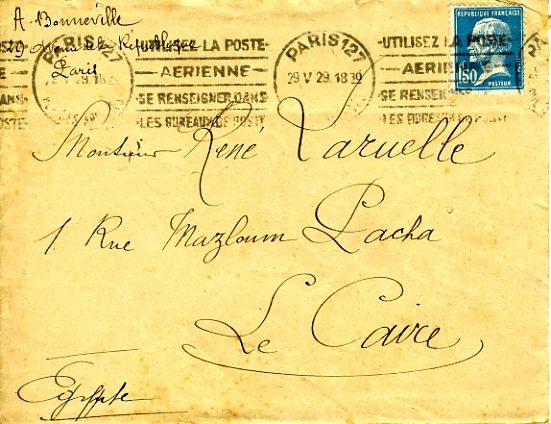 A. Bonneville
29 Avenue de la République
Paris
PARIS 127
UTILISEZ LA POSTE
AERIENNE
SE RENSEIGNER DANS
LES BUREAUX DE POSTE
PARIS 127
29 V 29. 18 30
UTILISEZ LA POSTE
AERIENNE
SE RENSEIGNER DANS
LES BUREAUX DE POSTE
RÉPUBLIQUE FRANÇAISE
1F50
PASTEUR
Monsieur René Laruelle
1 Rue Mazloum Pacha
Le Caire
Egypte